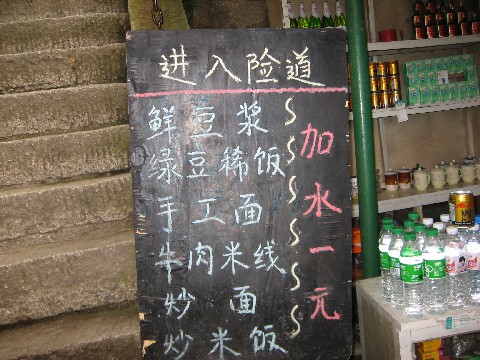 进入险道
鲜豆浆
绿豆稀饭
手工面
牛肉米线
炒面
炒米饭
加水一元